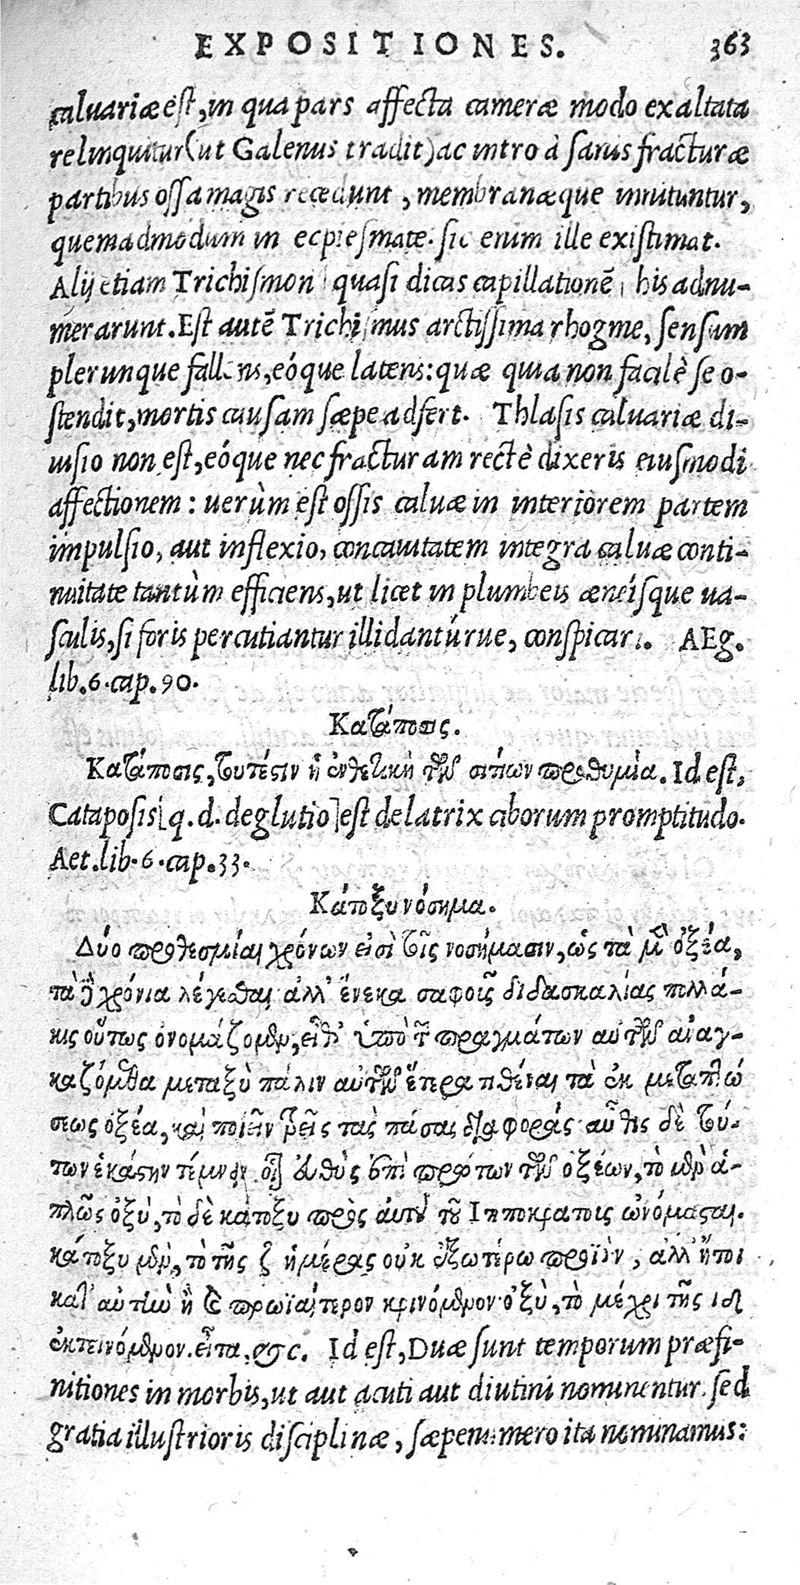 EXPOSITIONES. 363
caluariæ est, in qua pars affecta cameræ modo exaltata
relinquitur (ut Galenus tradit) ac intro à sanis fracturæ
partibus ossa magis recedunt, membranæque innituntur,
quemadmodum in ecpiesmate. sic enim ille existimat.
Alij etiam Trichismon quasi dicas capillationē, his adnu-
merarunt. Est autē Trichismus arctissima rhogme, sensum
plerunque fallens, eóque latens: quæ quia non facilè se o-
stendit, mortis causam sæpe adfert. Thlasis caluariæ di-
uisio non est, eóque nec fracturam rectè dixeris eiusmodi
affectionem: uerùm est ossis caluæ in interiorem partem
impulsio, aut inflexio, concauitatem integra caluæ conti-
nuitate tantùm efficiens, ut licet in plumbeis æneísque ua-
sculis, si foris percutiantur illidantúrue, conspicari. AEg.
lib. 6. cap. 90.
Κατάποσις.
Κατάποσις, τουτέστιν ἡ ἐνθετικὴ τῶν σιτίων προθυμία. Id est,
Cataposis [q. d. deglutio] est delatrix ciborum promptitudo.
Aet. lib. 6. cap. 33.
Κάτοξυ νόσημα.
Δύο προθεσμίαι χρόνων εἰσὶ τοῖς νοσήμασιν, ὡς τὰ μὲν ὀξέα,
τὰ δὲ χρόνια λέγεσθαι· ἀλλ' ἕνεκα σαφοῦς διδασκαλίας πολλά-
κις οὕτως ὀνομάζομεν, εἶθ' ὑπὸ τῶν πραγμάτων αὐτῶν ἀναγ-
καζόμεθα μεταξὺ πάλιν αὐτῶν ἕτερα τιθέναι τὰ ἐκ μεταπτώ
σεως ὀξέα, καὶ ποιεῖν τρεῖς τὰς πάσας διαφοράς· αὖθις δὲ τού-
των ἑκάστην τέμνειν. οἷον εὐθὺς ἐπὶ πρώτων τῶν ὀξέων, τὸ μὲν ἁ-
πλῶς ὀξὺ, τὸ δὲ κάτοξυ πρὸς αὐτοῦ τοῦ Ἱπποκράτους ὠνόμασται.
κάτοξυ μὲν, τὸ τῆς ζ ἡμέρας οὐκ ἐξωτέρω προϊὸν, ἀλλ' ἤτοι
κατ' αὐτὴν ἢ καὶ πρωϊαίτερον κρινόμενον· ὀξὺ, τὸ μέχρι τῆς ιδ
ἐκτεινόμενον. εἶτα, &c. Id est, Duæ sunt temporum præfi-
nitiones in morbis, ut aut acuti aut diutini nominentur. sed
gratia illustrioris disciplinæ, sæpenumero ita nominamus: